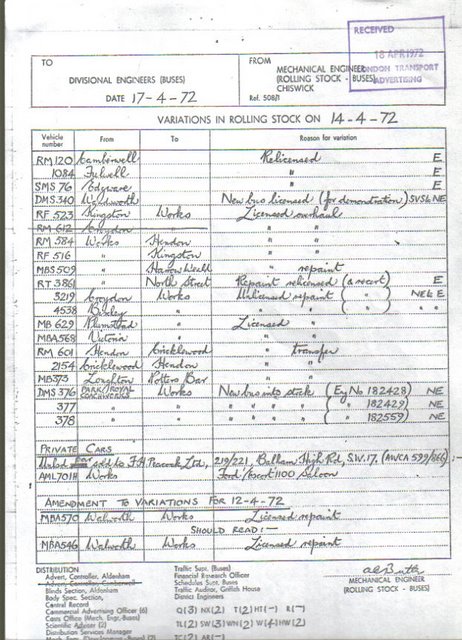 RECEIVED
18 APR 1972
LONDON TRANSPORT
ADVERTISING
TO
DIVISIONAL ENGINEERS (BUSES)
DATE 17-4-72
FROM
MECHANICAL ENGINEER
(ROLLING STOCK - BUSES)
CHISWICK
Ref. 508/1
VARIATIONS IN ROLLING STOCK ON 14-4-72
Vehicle number From To Reason for variation
RM 120 Camberwell Relicensed E
1084 Fulwell " E
SMS 76 Edgware " E
DMS 340 Wandsworth New bus licensed (for demonstration) SVS & NE
RF 523 Kingston Works Licensed overhaul
RM 612 Croydon " "
RM 584 Works Hendon " "
RF 516 " Kingston " "
MBS 509 " Harrow Weald " repaint
RT 3861 " North Street Repaint relicensed (& recert) E
3219 Croydon Works Unlicensed repaint ( " ) NE & E
4538 Bexley " " " ( " ) " "
MB 629 Plumstead " Licensed "
MBA 568 Victoria " " "
RM 601 Hendon Cricklewood " transfer
2154 Cricklewood Hendon " "
MB 373 Loughton Potters Bar " "
DMS 376 PARK/ROYAL Works New bus into stock (Eng No 182428) NE
377 " " " " " " ( " 182429) NE
378 " " " " " " ( " 182559) NE
PRIVATE CARS
sold to F.H. Peacock Ltd, 219/221, Balham High Rd, S.W.17. (AWCA 599/
AML 701H Works Ford Escort 1100 Saloon
AMENDMENT TO VARIATIONS FOR 12-4-72
MBA 570 Walworth Works Licensed repaint
SHOULD READ:-
MBA 546 Walworth Works Licensed repaint
DISTRIBUTION
Advert. Controller, Aldenham
Advert. Controller, Camberwell
Blinds Section, Aldenham
Body Spec. Section,
Central Record
Commercial Advertising Officer (6)
Costs Office (Mech. Engr.-Buses)
Scientific Adviser (2)
Distribution Services Manager
Traffic Supt. (Buses)
Financial Research Officer
Schedules Supt. Buses
Traffic Auditor, Griffith House
District Engineers
Q(3) NX(2) T(2) HT(-) R(-)
TL(2) SW(3) WN(2) W(4) HW(2)
TC(2) AR(-)
MECHANICAL ENGINEER
(ROLLING STOCK - BUSES)